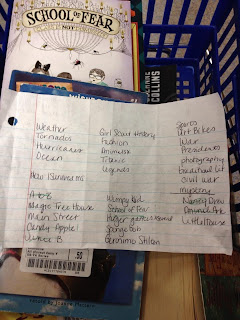 SCHOOL OF FEAR
NOT
SUZANNE
COLLINS
Weather
Tornados
Hurricanes
Ocean
A to Z
Magic Tree House
Main Street
Candy Apple
Junie B
Girl Scout History
Fashion
Animals
Titanic
Legends
Wimpy Kid
School of Fear
Sponge Bob
Geronimo Stilton
Sports
Dirt Bikes
War
Presidents
photography
civil war
mystery
Nancy Drew
Animal Ark
Little House
50